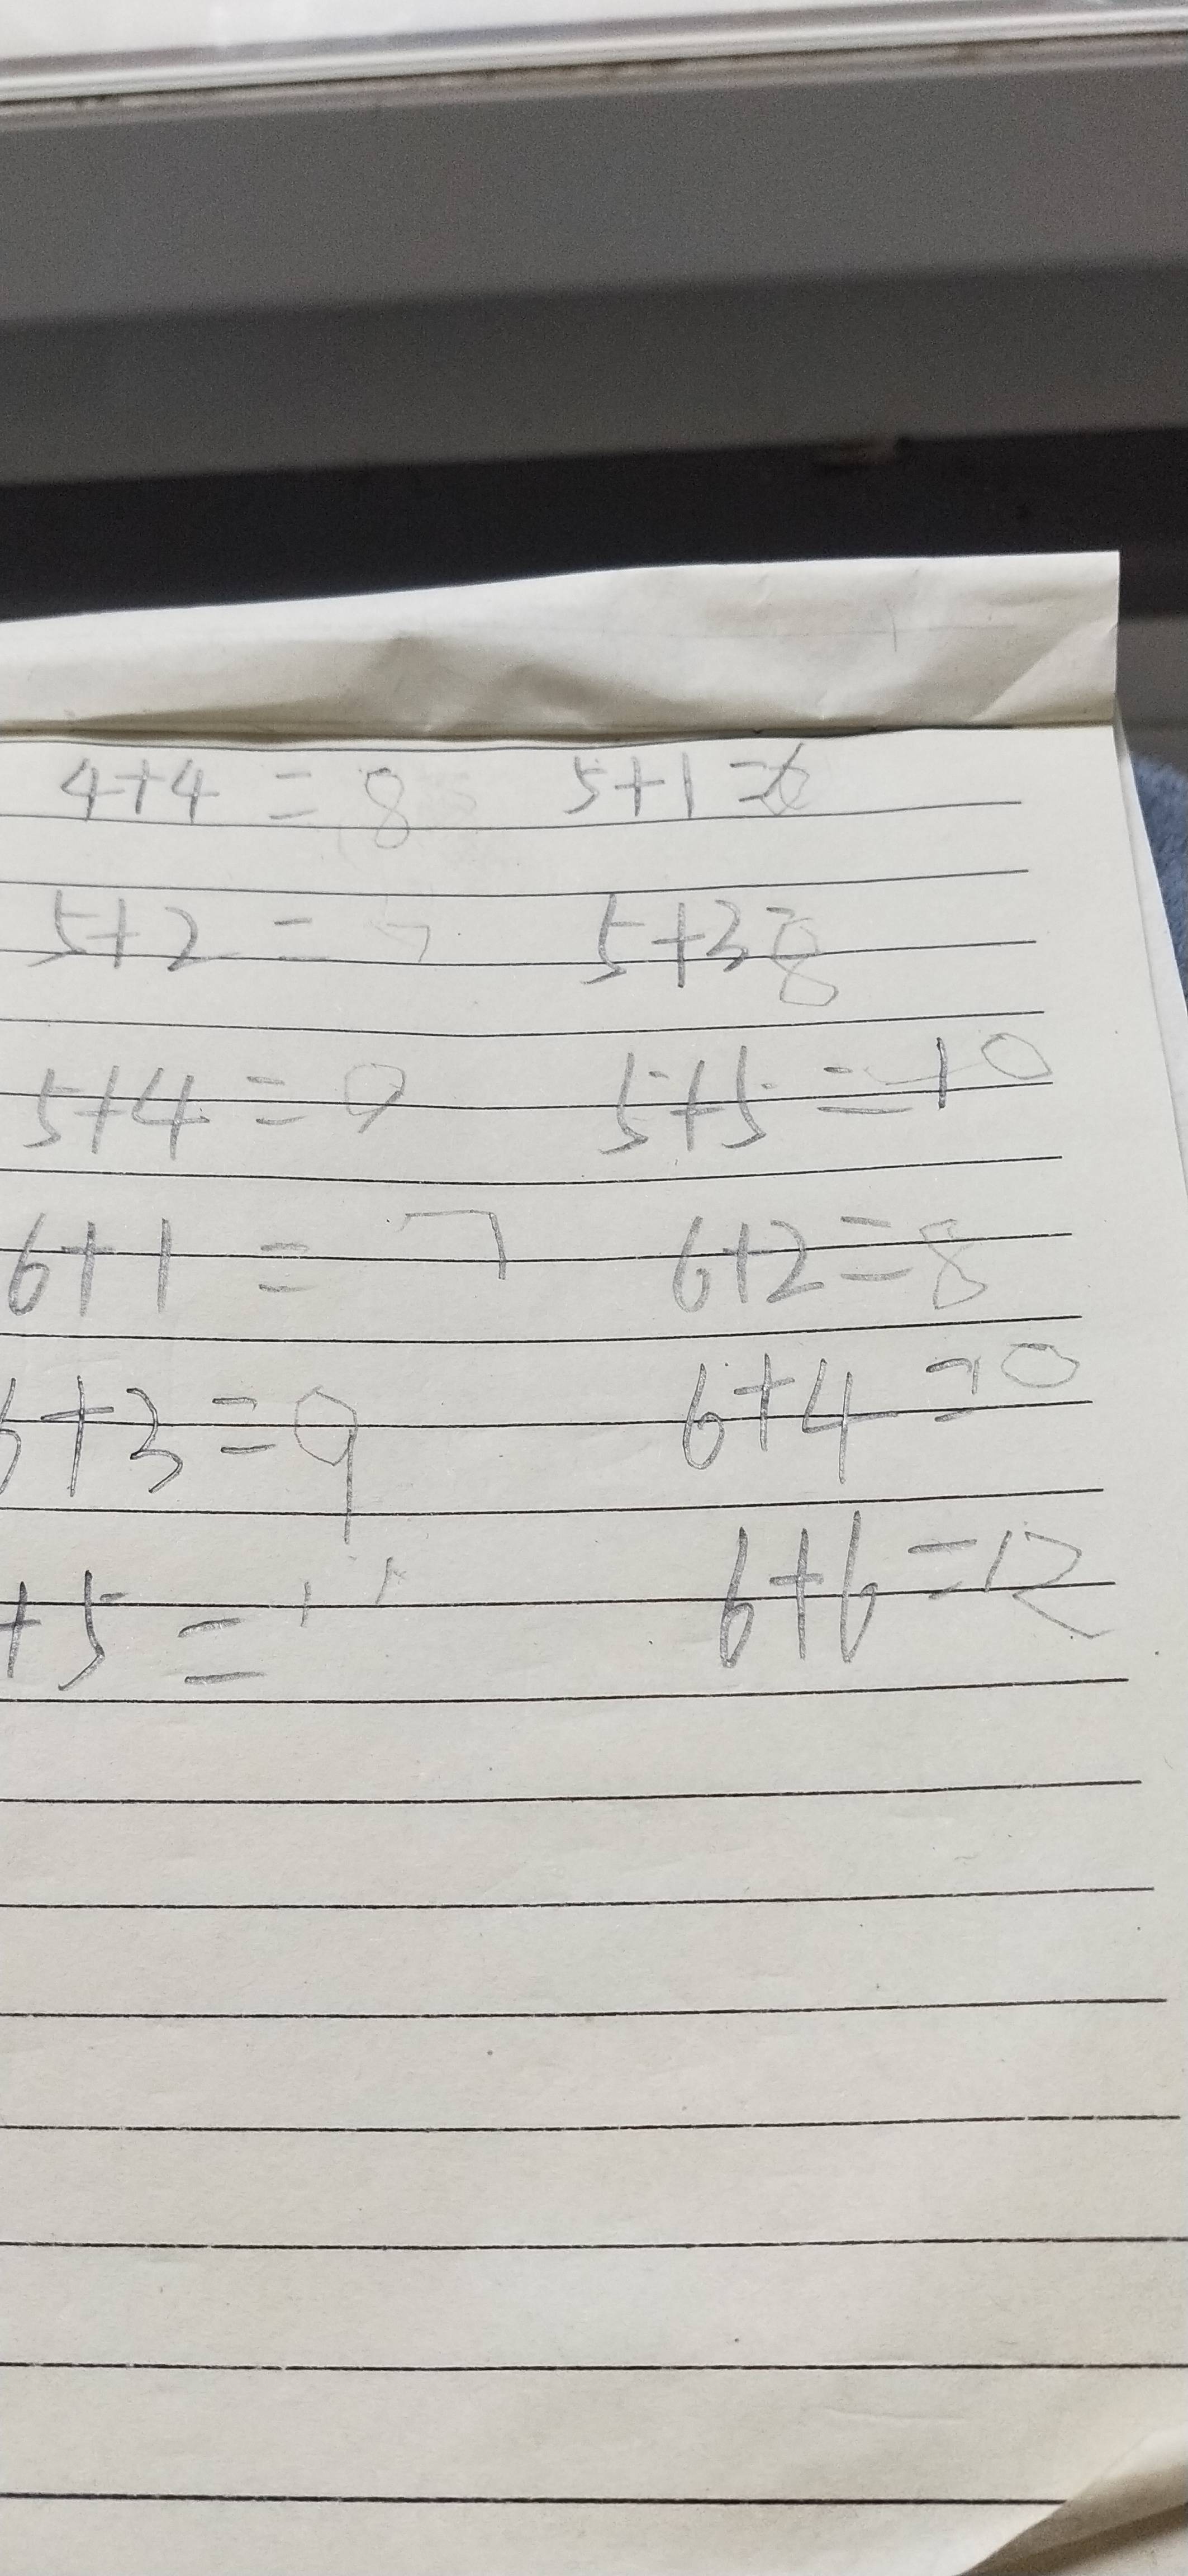 4+4=8 5+1=6
5+2=7 5+3=8
5+4=9 5+5=10
6+1=7 6+2=8
6+3=9 6+4=10
+5=11 6+6=12